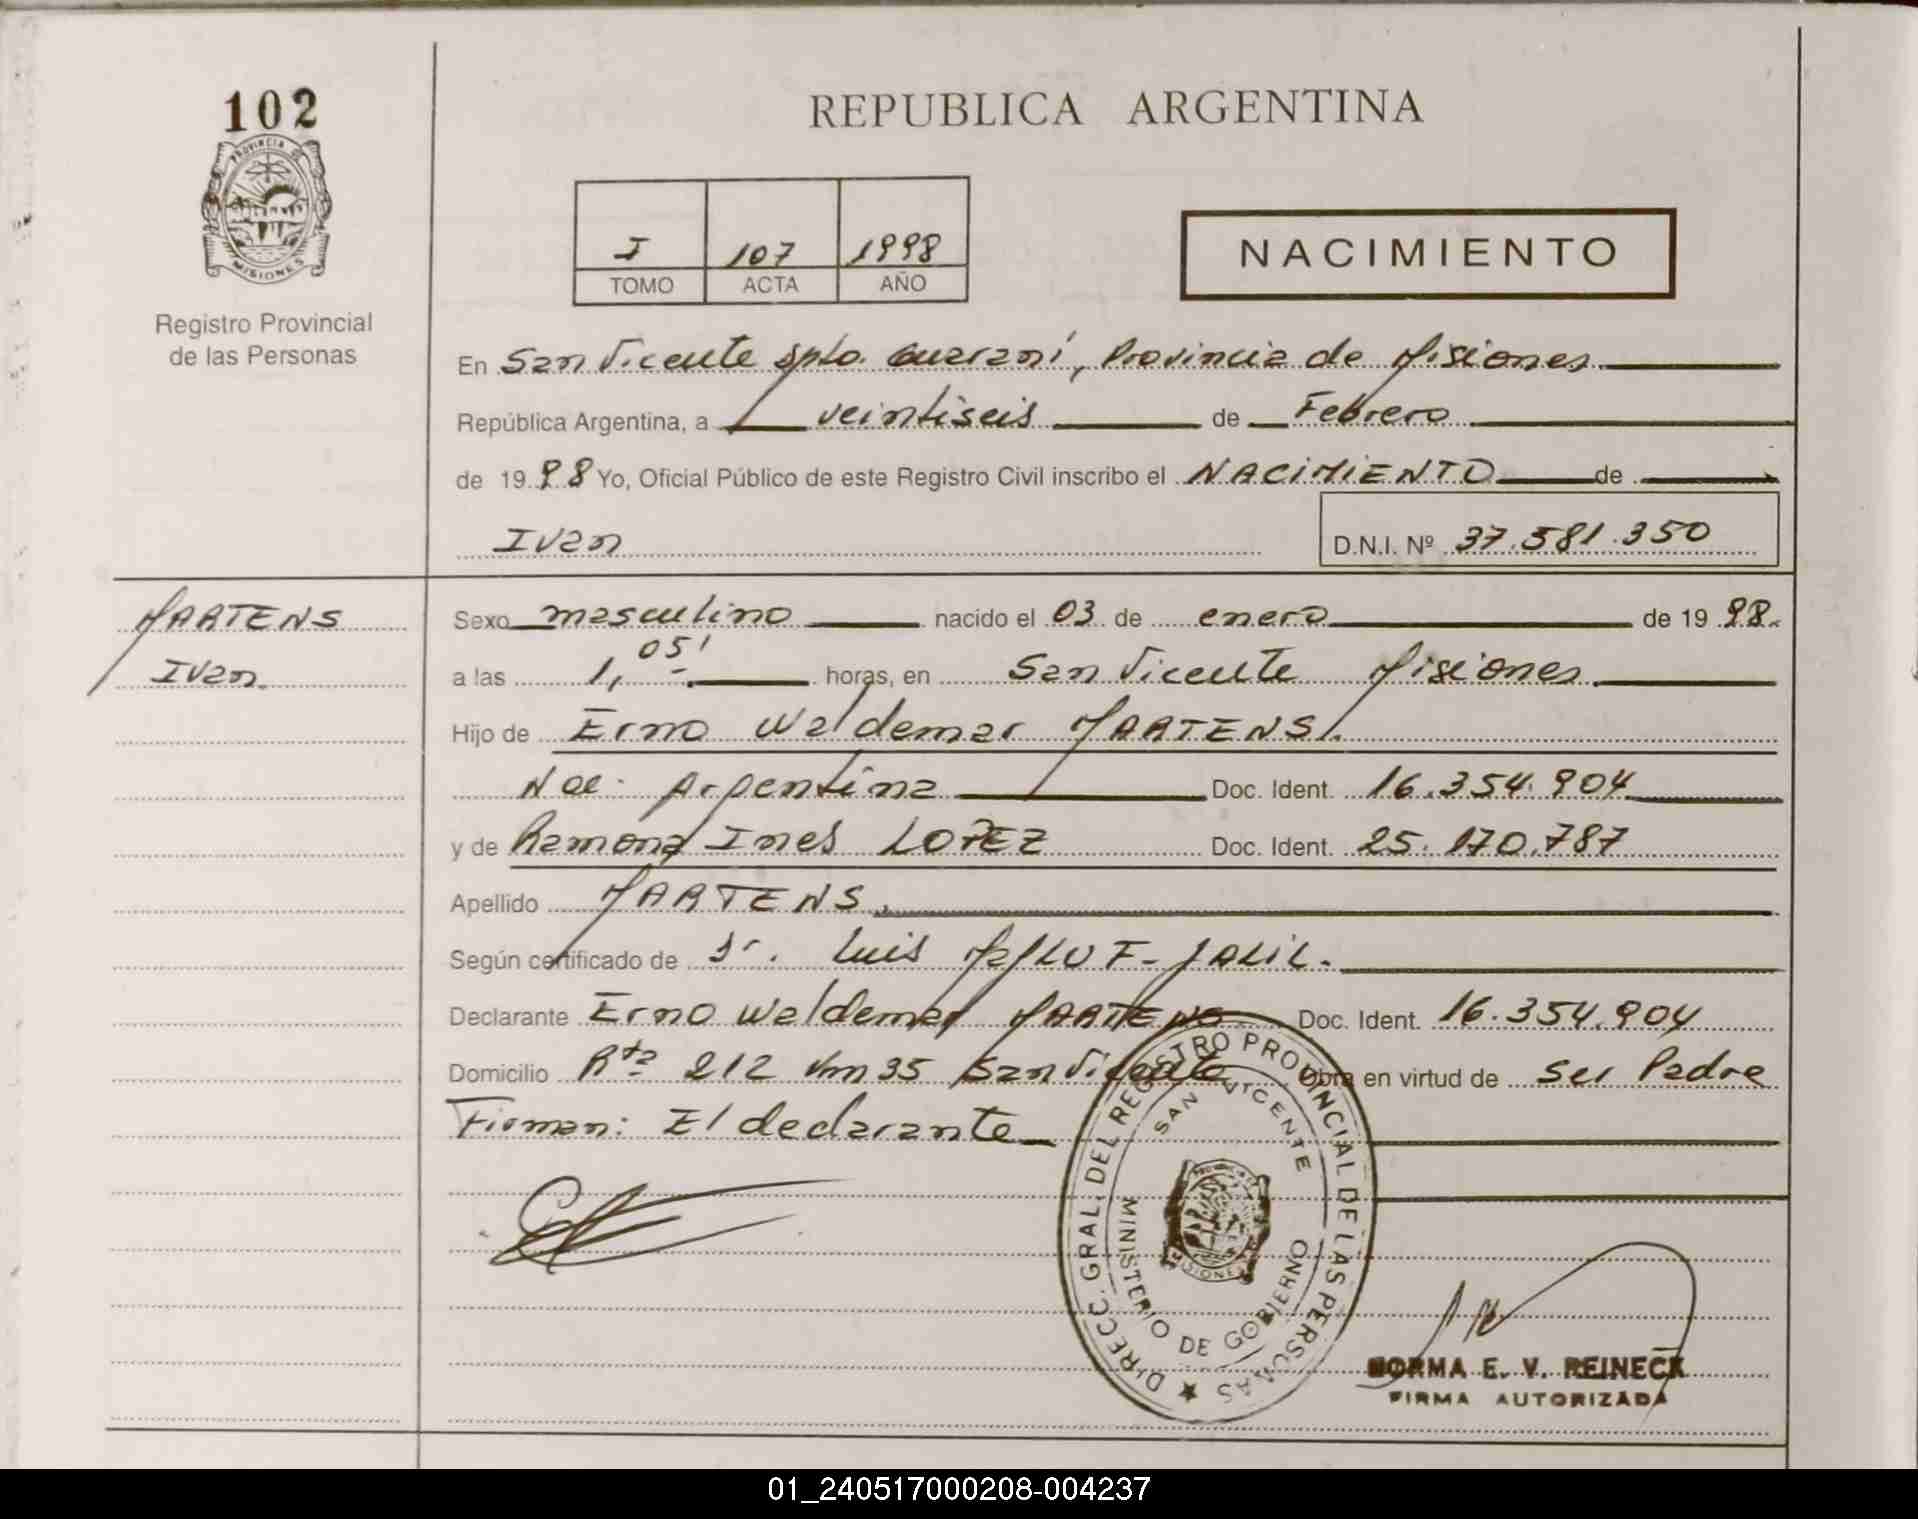 102
PROVINCIA DE
MISIONES
Registro Provincial
de las Personas
REPUBLICA ARGENTINA
I 107 1998
TOMO ACTA AÑO
NACIMIENTO
En San Vicente Dpto. Guaraní, Provincia de Misiones
República Argentina, a veintiseis de Febrero
de 1998 Yo, Oficial Público de este Registro Civil inscribo el NACIMIENTO de
Ivan D.N.I. Nº 37.581.350
MARTENS
Ivan.
Sexo masculino nacido el 03 de enero de 1998.
a las 1,05' horas, en San Vicente Misiones
Hijo de Erno Waldemar MARTENS.
Nac. Argentina Doc. Ident. 16.354.904
y de Ramona Ines LOPEZ Doc. Ident. 25.170.787
Apellido MARTENS.
Según certificado de Dr. Luis JALIL.
Declarante Erno Waldemar MARTENS Doc. Ident. 16.354.904
Domicilio Rta 212 Km 35 San Vicente Obra en virtud de ser Padre
Firman: El declarante
DIRECC. GRAL. DEL REGISTRO PROVINCIAL DE LAS PERSONAS
SAN VICENTE
MISIONES
MINISTERIO DE GOBIERNO
NORMA E. V. REINECK
FIRMA AUTORIZADA
01_240517000208-004237